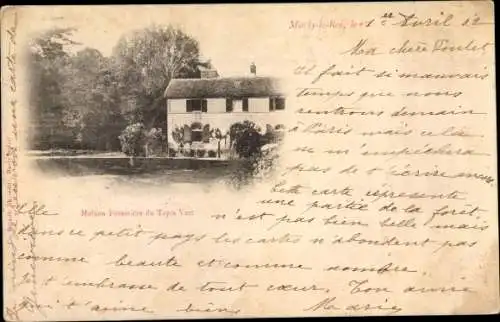 Marly-le-Roi, le 1er Avril
Ma chère
Il fait si mauvais
temps que nous
rentrons demain
à Paris mais cela
ne m'empêchera
pas de t'écrire
Cette carte représente
une partie de la forêt
Maison Forestière du Tapis Vert
Elle n'est pas bien belle mais
dans ce petit pays les cartes n'abondent pas
comme beauté et comme nombre.
Je t'embrasse de tout cœur. Ton amie
qui t'aime bien Marie